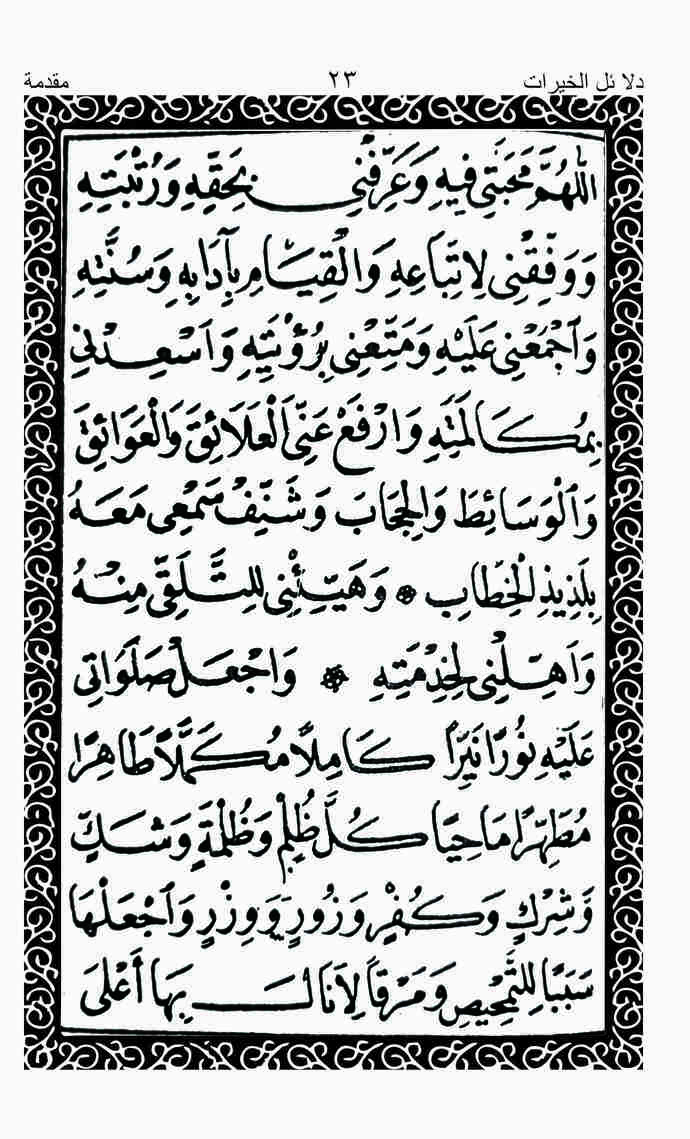 دلائل الخيرات ٢٣ مقدمة
اللّٰهُمَّ مَحَبَّتِي فِيهِ وَعَرِّفْنِي بِحَقِّهِ وَرُتْبَتِهِ
وَوَفِّقْنِي لِاتِّبَاعِهِ وَالْقِيَامِ بِآدَابِهِ وَسُنَّتِهِ
وَاجْمَعْنِي عَلَيْهِ وَمَتِّعْنِي بِرُؤْيَتِهِ وَاَسْعِدْنِي
بِمُكَالَمَتِهِ وَارْفَعْ عَنِّي الْعَلَائِقَ وَالْعَوَائِقَ
وَالْوَسَائِطَ وَالْحِجَابَ وَشَنِّفْ سَمْعِي مَعَهُ
بِلَذِيذِ الْخِطَابِ * وَهَيِّئْنِي لِلتَّلَقِّي مِنْهُ
وَاَهِّلْنِي لِخِدْمَتِهِ * وَاجْعَلْ صَلَوَاتِي
عَلَيْهِ نُورًا نَيِّرًا كَامِلًا مُكَمَّلًا طَاهِرًا
مُطَهِّرًا مَاحِيًا كُلَّ ظُلْمٍ وَظُلْمَةٍ وَشَكٍّ
وَشِرْكٍ وَكُفْرٍ وَزُورٍ وَوِزْرٍ وَاجْعَلْهَا
سَبَبًا لِلتَّمْحِيصِ وَمَرْقًا لِاَنَالَ بِهَا أَعْلَى